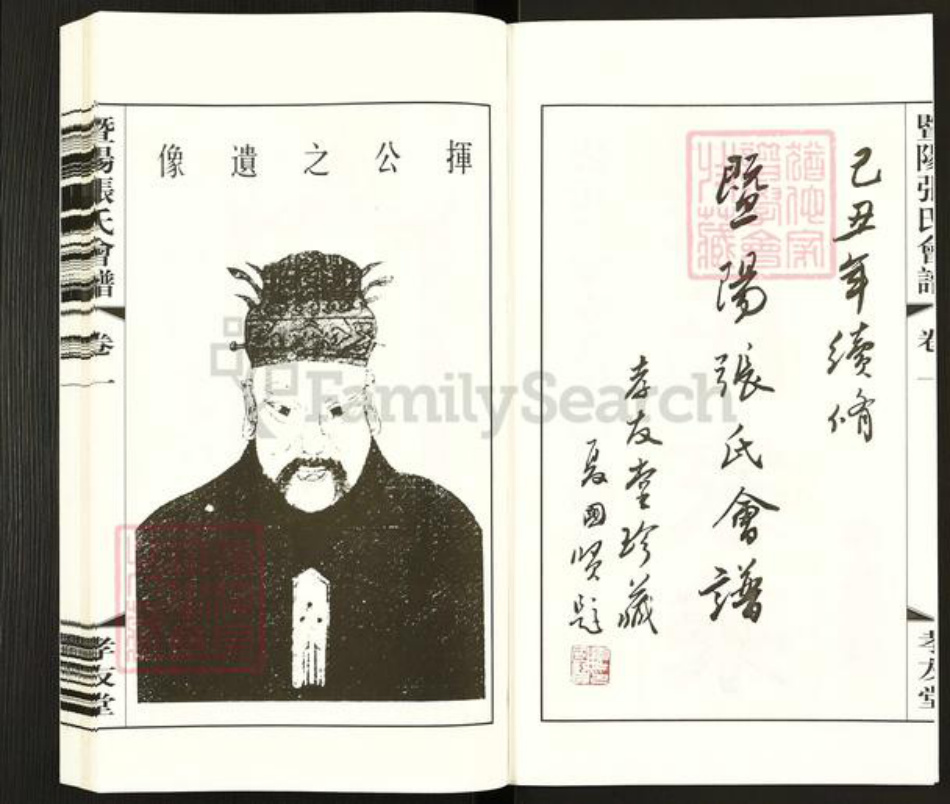 己丑年續脩
暨陽張氏會譜
孝友堂珍藏
夏國賢題
暨陽張氏會譜 卷一 孝友堂
揮公之遺像
暨陽張氏會譜 卷一 孝友堂
FamilySearch